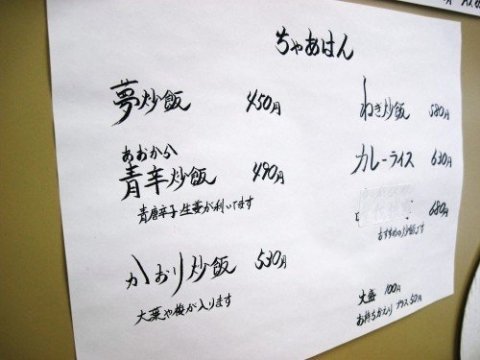 ちゃあはん
夢炒飯 450円
あおから
青辛炒飯 480円
青唐辛子生姜が利いてます
かおり炒飯 530円
大葉や梅が入ります
ねぎ炒飯 580円
カレーライス 630円
680円
おすすめの
大盛 100円
お持ちかえり プラス50円